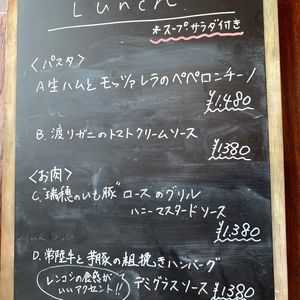 Lunch.
*スープサラダ付き
〈パスタ〉
A 生ハムとモッツァレラのペペロンチーノ
¥1,480
B. 渡りガニのトマトクリームソース
¥1380
〈お肉〉
C. "瑞穂のいも豚" ロースのグリル
ハニーマスタードソース
¥1,380
D. 常陸牛と芋豚の粗挽きハンバーグ
レンコンの食感が
いいアクセント!!
デミグラスソース ¥1380